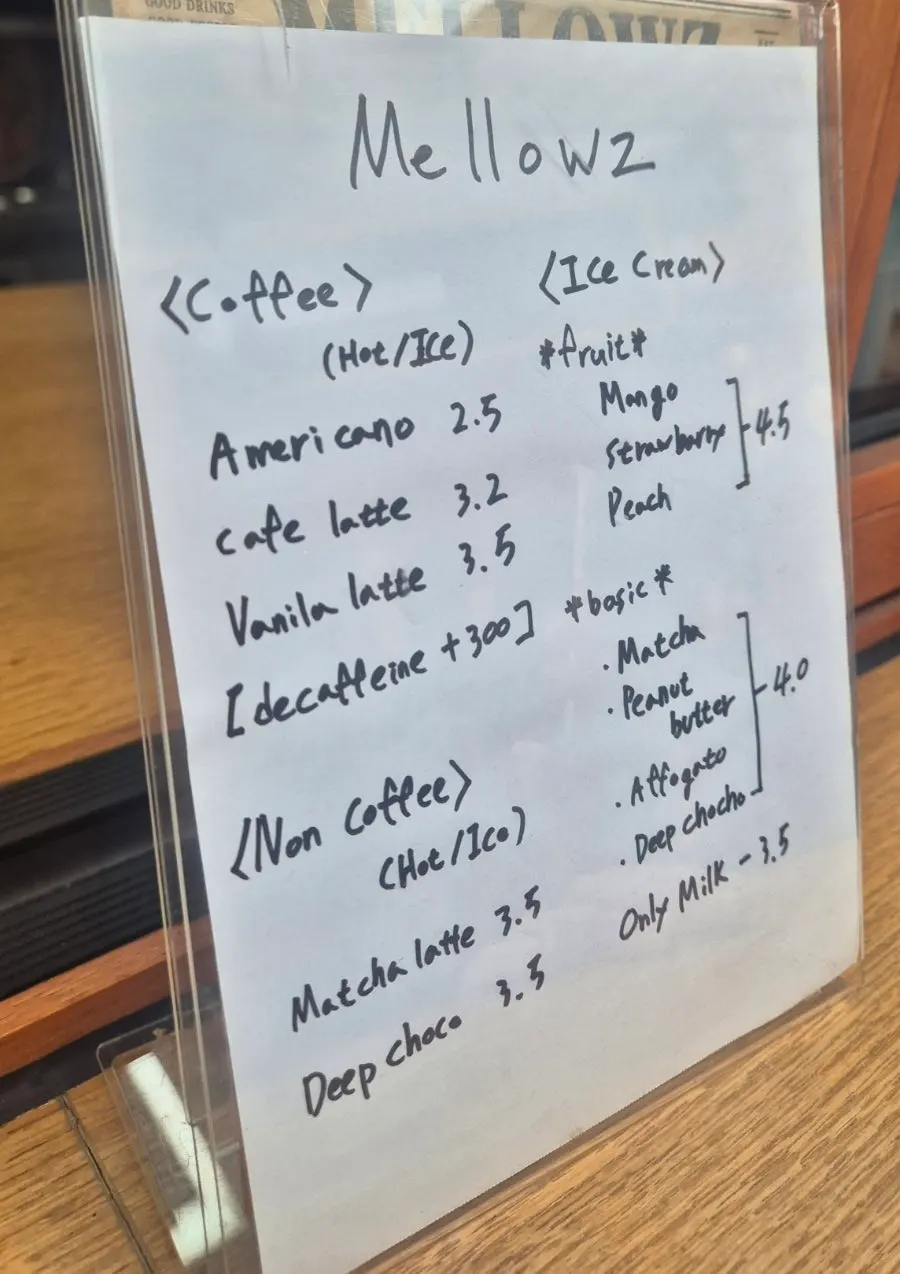 GOOD DRINKS
MELLOWZ
Mellowz
<Coffee>
(Hot/ICe)
Americano 2.5
cafe latte 3.2
Vanila latte 3.5
[decaffeine +300]
<Non Coffee>
(Hot/Ice)
Matcha latte 3.5
Deep choco 3.5
<Ice Cream>
*fruit*
Mango
Strawbarry
4.5
Peach
*basic*
· Matcha
· Peanut
butter
4.0
· Affogato
· Deep chocho
Only Milk - 3.5